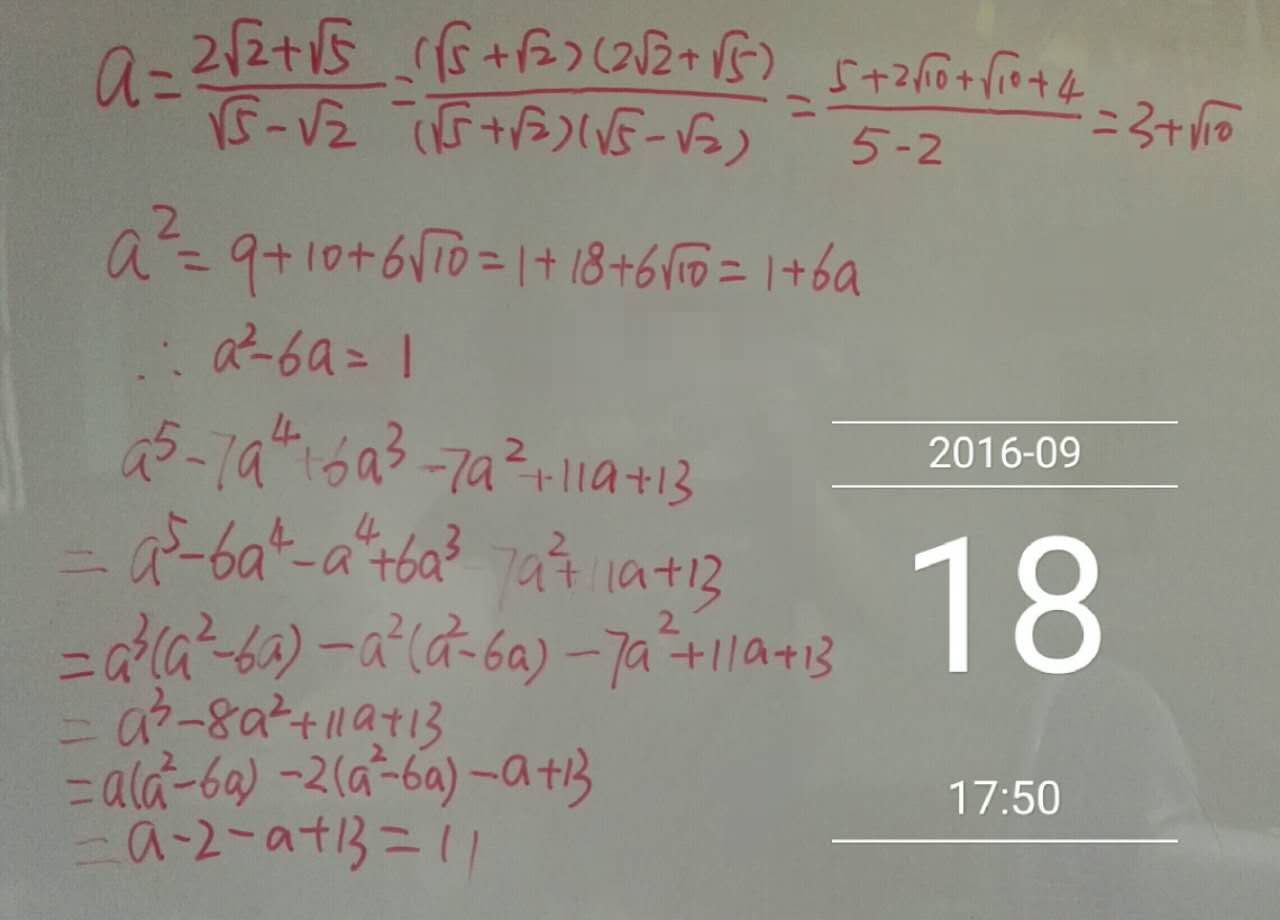 a = (2√2+√5)/(√5-√2) = (√5+√2)(2√2+√5)/(√5+√2)(√5-√2) = (5+2√10+√10+4)/(5-2) = 3+√10
a² = 9+10+6√10 = 1+18+6√10 = 1+6a
∴ a²-6a = 1
a⁵-7a⁴+6a³-7a²+11a+13
= a⁵-6a⁴-a⁴+6a³-7a²+11a+13
= a³(a²-6a)-a²(a²-6a)-7a²+11a+13
= a³-8a²+11a+13
= a(a²-6a)-2(a²-6a)-a+13
= a-2-a+13 = 11
2016-09
18
17:50